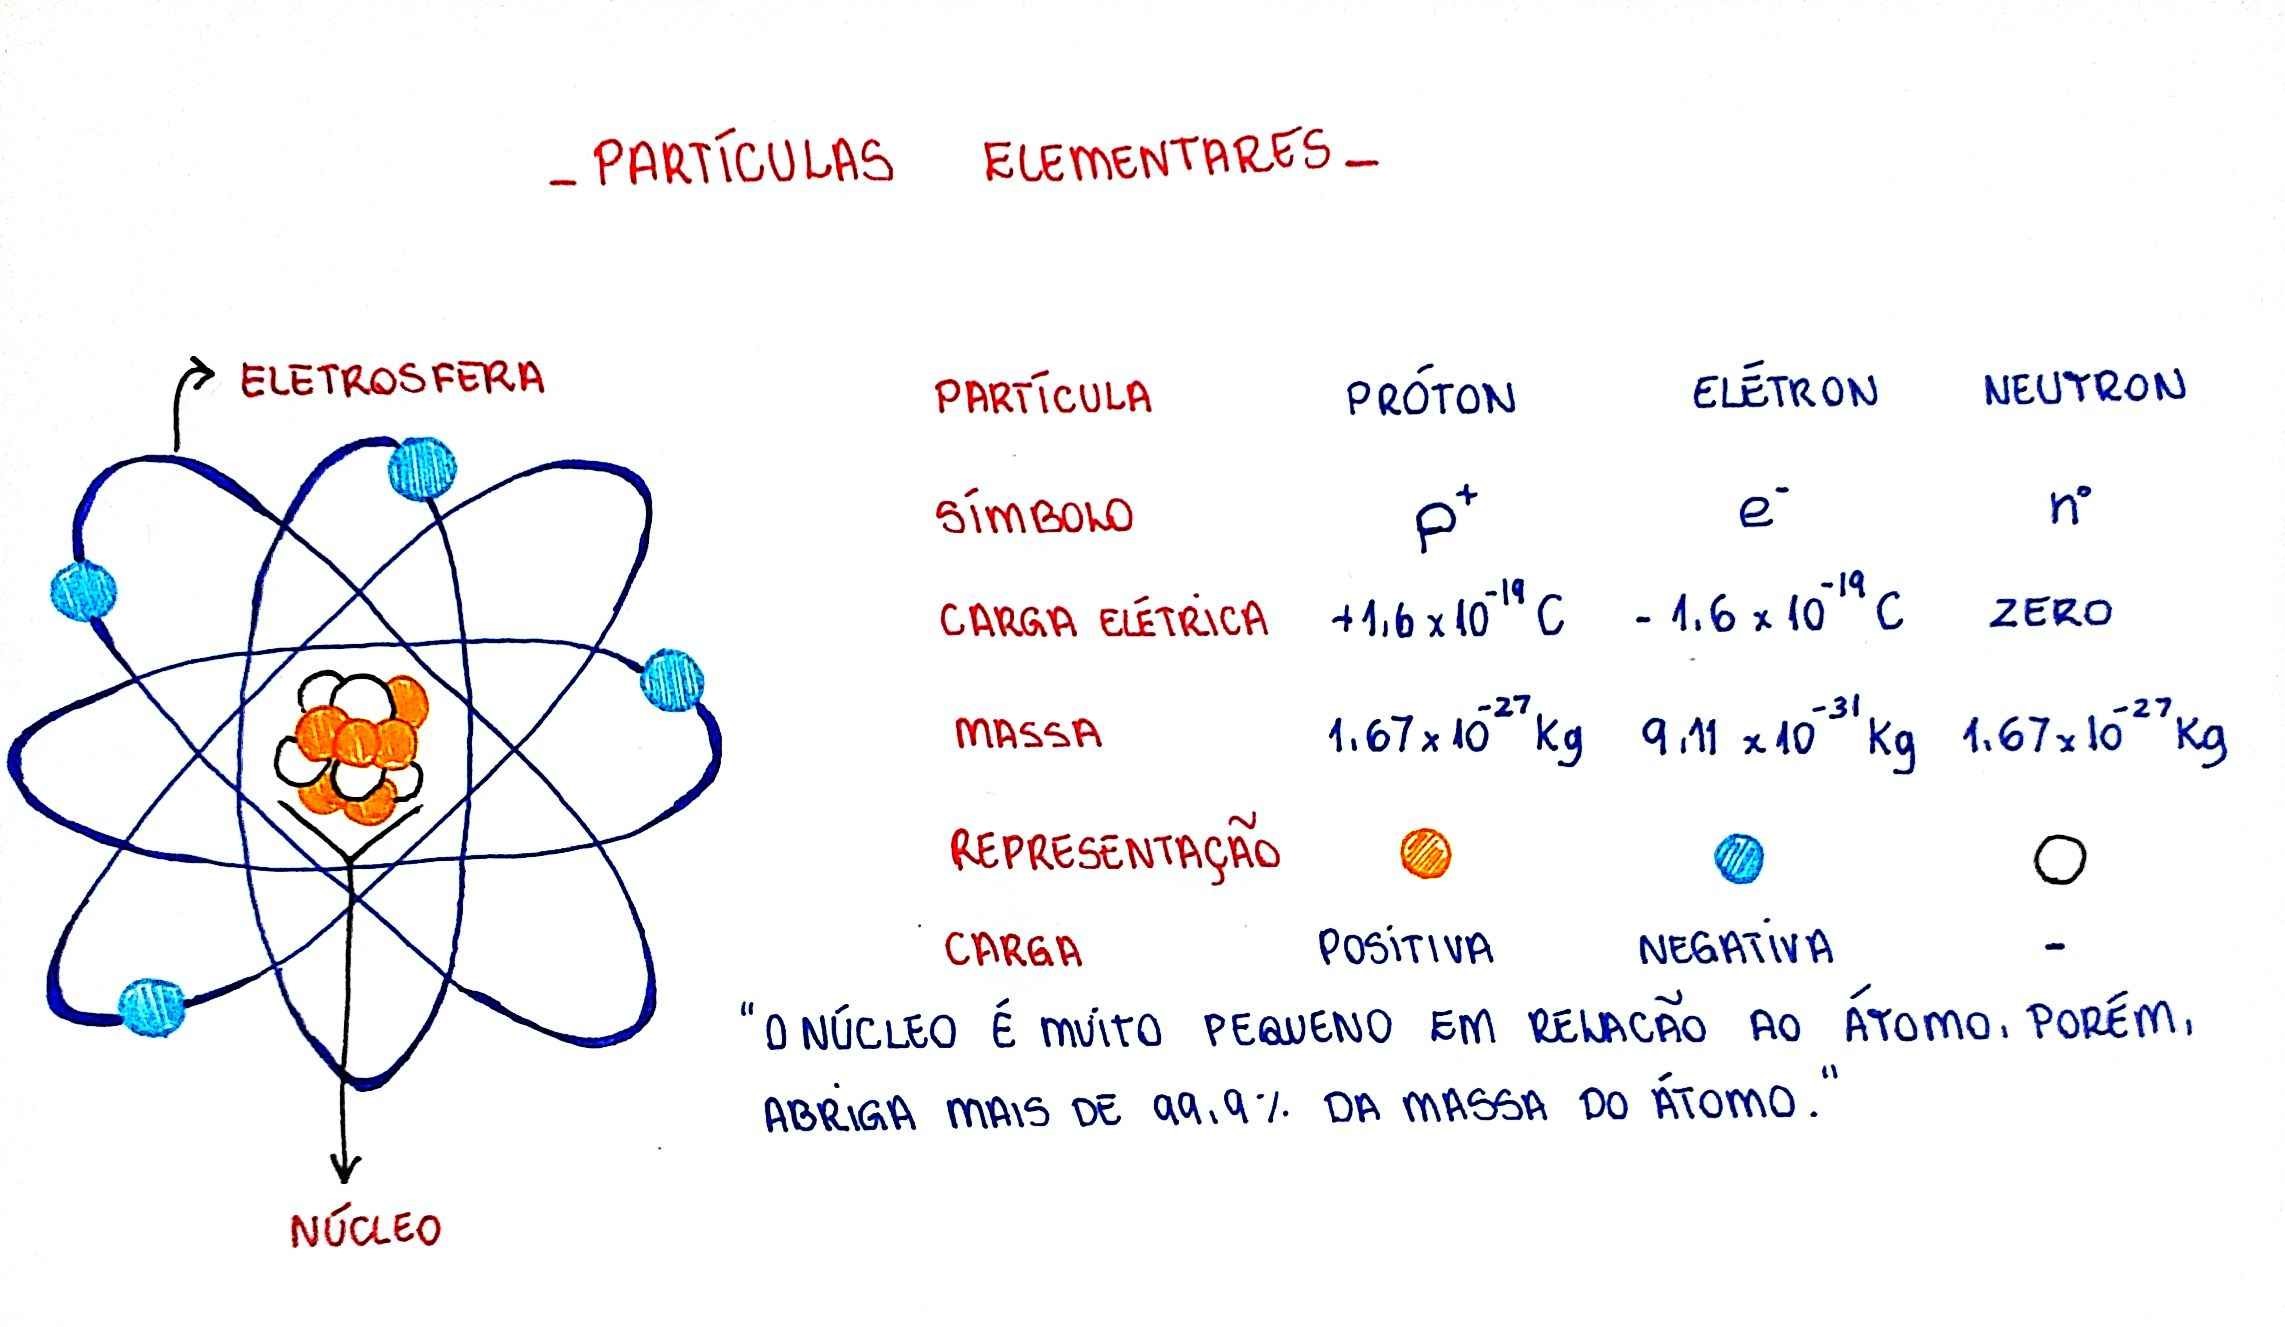 _ PARTÍCULAS ELEMENTARES _
ELETROSFERA
NÚCLEO
PARTÍCULA PRÓTON ELÉTRON NEUTRON
SÍMBOLO p⁺ e⁻ n°
CARGA ELÉTRICA +1,6 x 10⁻¹⁹ C - 1.6 x 10⁻¹⁹ C ZERO
MASSA 1.67 x 10⁻²⁷ Kg 9.11 x 10⁻³¹ Kg 1.67 x 10⁻²⁷ Kg
REPRESENTAÇÃO
CARGA POSITIVA NEGATIVA -
"O NÚCLEO É MUITO PEQUENO EM RELACÃO AO ÁTOMO, PORÉM,
ABRIGA MAIS DE 99,9% DA MASSA DO ÁTOMO."